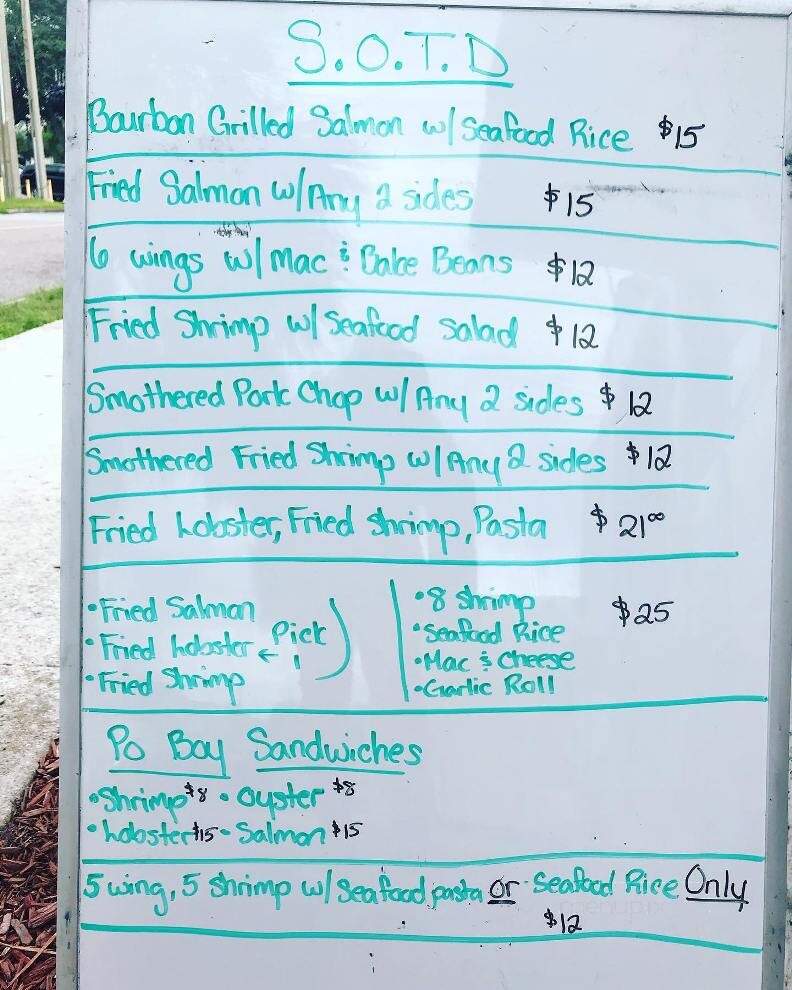 S.O.T.D
Bourbon Grilled Salmon w/ Seafood Rice $15
Fried Salmon w/ Any 2 sides $15
6 wings w/ Mac & Bake Beans $12
Fried Shrimp w/ Seafood Salad $12
Smothered Pork Chop w/ Any 2 sides $12
Smothered Fried Shrimp w/ Any 2 sides $12
Fried Lobster, Fried Shrimp, Pasta $21⁰⁰
•Fried Salmon
•Fried Lobster ← Pick 1
•Fried Shrimp
•8 shrimp $25
•Seafood Rice
•Mac & Cheese
•Garlic Roll
Po Boy Sandwiches
•Shrimp $8 •Oyster $8
•Lobster $15 - Salmon $15
5 wing, 5 Shrimp w/ Seafood pasta or Seafood Rice Only
$12